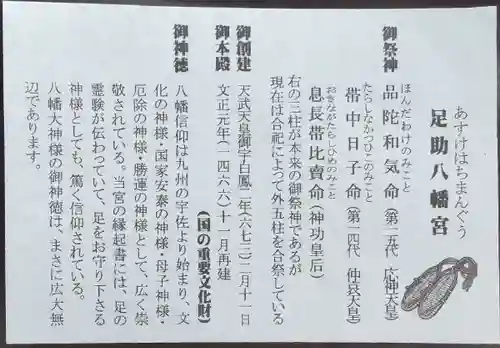 あすけはちまんぐう
足助八幡宮
御祭神
ほんだわけのみこと
品陀和気命（第一五代　応神天皇）
たらしなかつひこのみこと
帯中日子命（第一四代　仲哀天皇）
おきながたらしひめのみこと
息長帯比賣命（神功皇后）
右の三柱が本来の御祭神であるが
現在は合祀によって外五柱を合祭している
御創建　天武天皇御宇白鳳二年（六七三）二月十一日
御本殿　文正元年（一四六六）十一月再建
（国の重要文化財）
御神徳　八幡信仰は九州の宇佐より始まり、文
化の神様・国家安泰の神様・母子神様・
厄除の神様・勝運の神様として、広く崇
敬されている。当宮の縁起書には、足の
霊験が伝わっていて、足をお守り下さる
神様としても、篤く信仰されている。
八幡大神様の御神徳は、まさに広大無
辺であります。